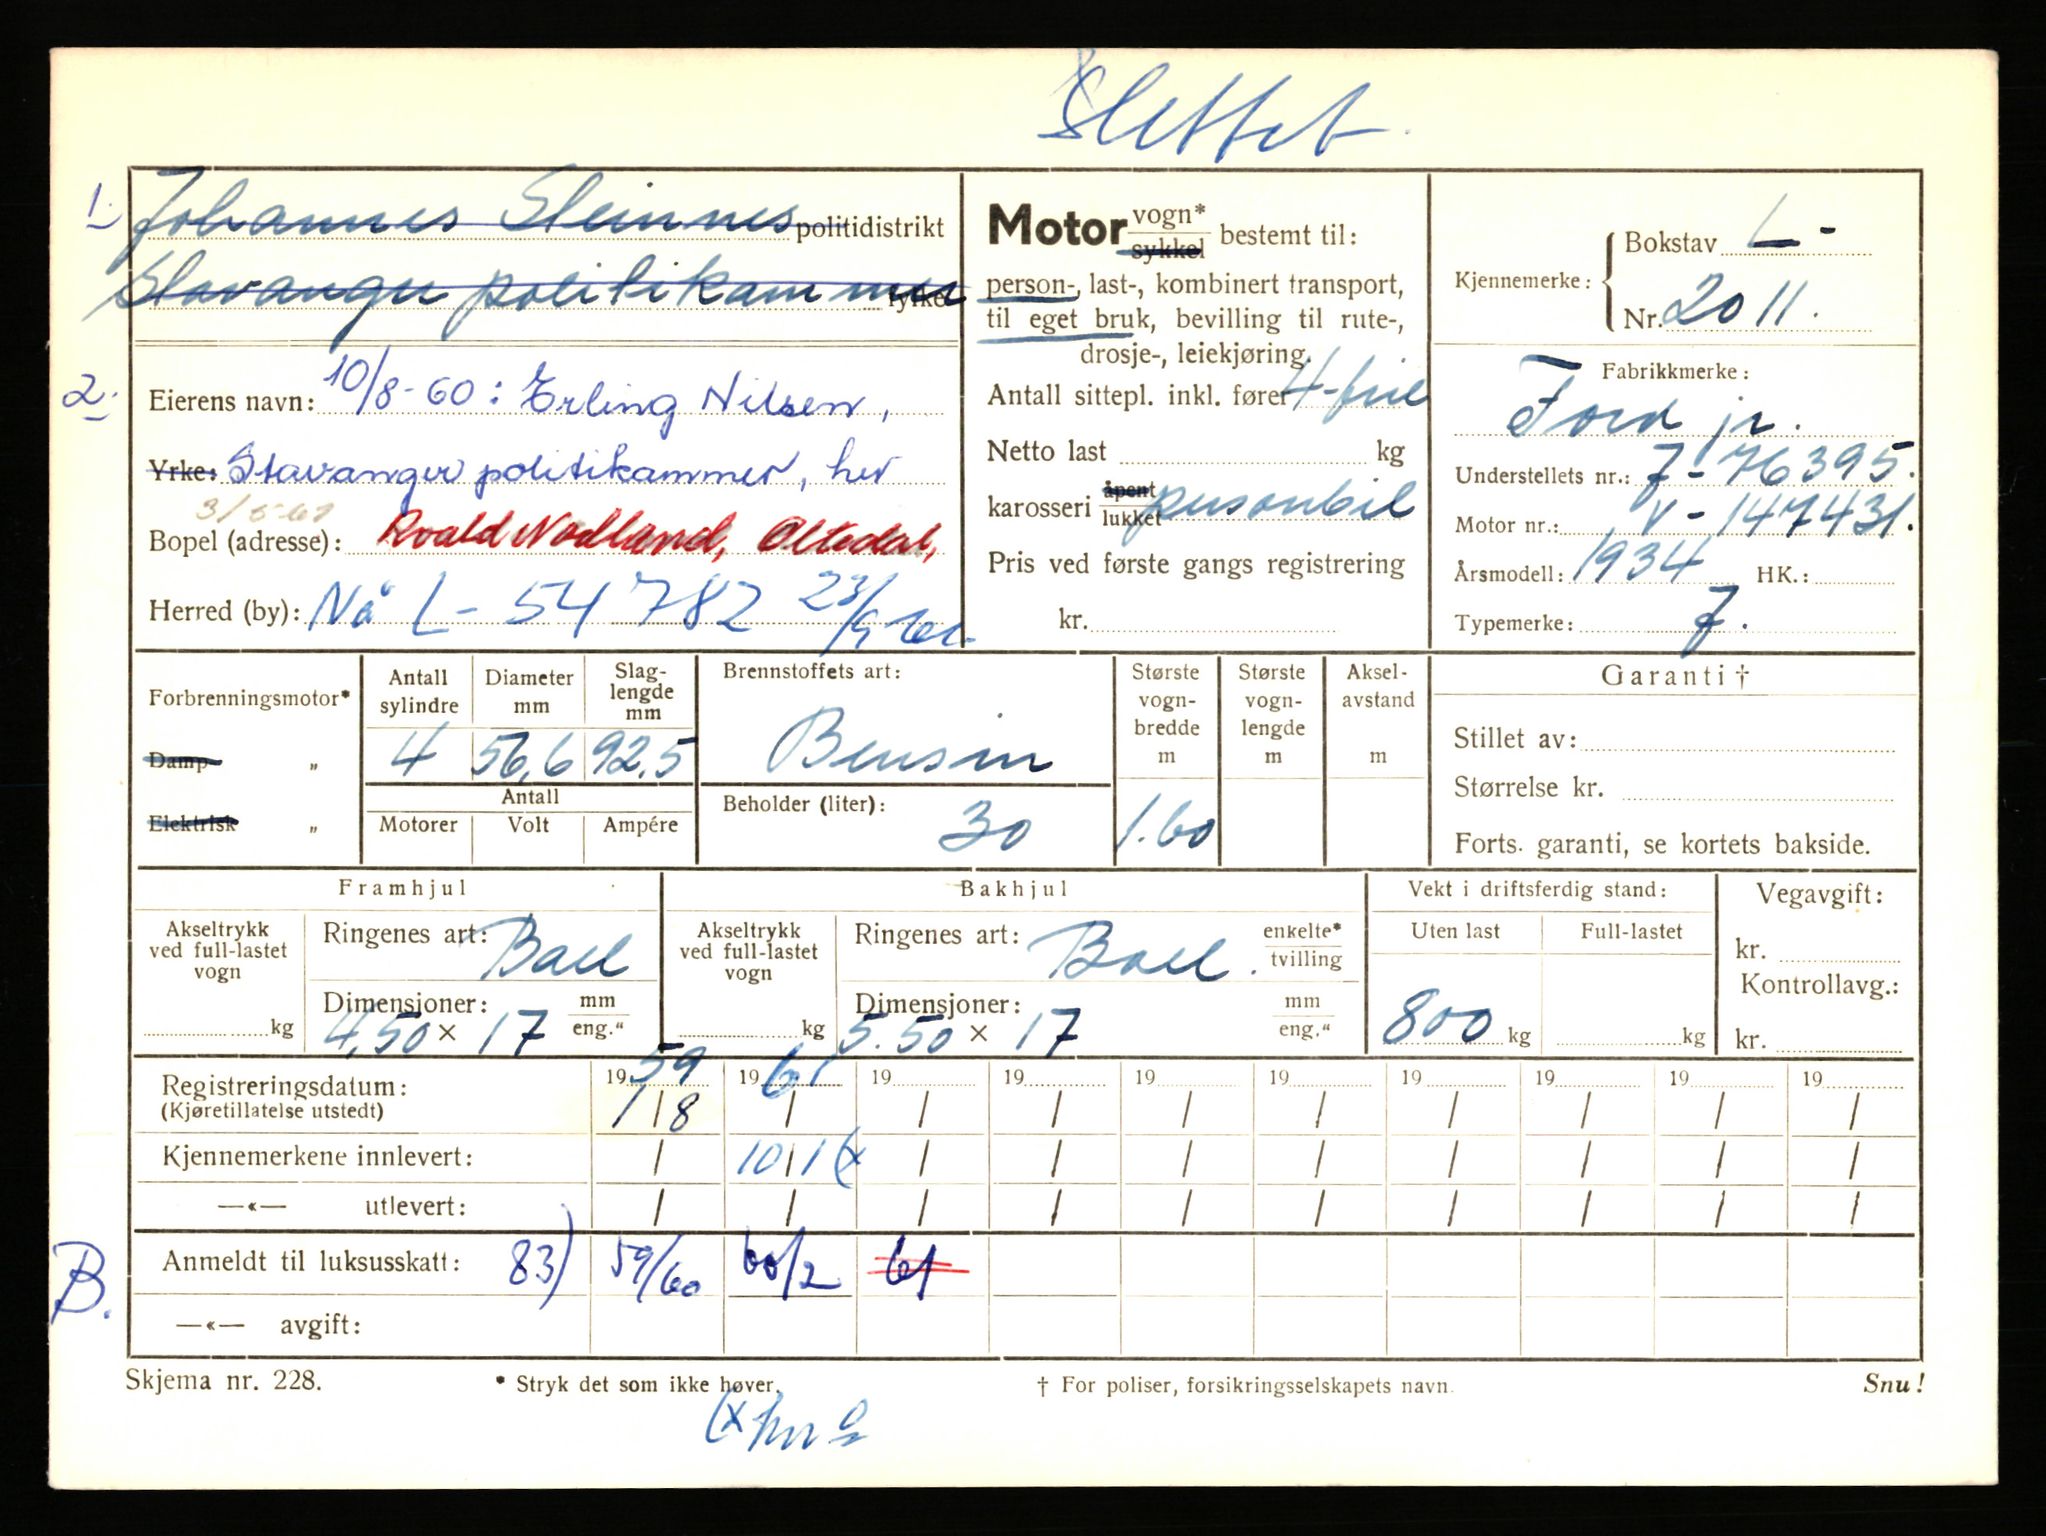 Slettet.
1. Johannes Steinnes politidistrikt
Stavanger politikammer fylke
2. Eierens navn: 10/8-60: Erling Nilsen,
Yrke: Stavanger politikammer, her
3/5-61
Bopel (adresse): Roald Nodland, Oltedal,
Herred (by): Nå L- 54782 23/9-61.
Motor vogn* sykkel bestemt til:
person-, last-, kombinert transport,
til eget bruk, bevilling til rute-,
drosje-, leiekjøring.
Antall sittepl. inkl. fører 4-fire
Netto last kg
karosseri åpent lukket personbil
Pris ved første gangs registrering
kr.
Kjennemerke: Bokstav L-
Nr. 2011.
Fabrikkmerke:
Ford jr.
Understellets nr.: 7-76395.
Motor nr.: V-147431.
Årsmodell: 1934 HK.:
Typemerke: 7.
Forbrenningsmotor*
Damp „
Elektrisk „
Antall sylindre Diameter mm Slag-lengde mm
4 56,6 92,5
Antall
Motorer Volt Ampére
Brennstoffets art:
Bensin
Beholder (liter):
30
Største vogn-bredde m
1.60
Største vogn-lengde m
Aksel-avstand m
Garanti †
Stillet av:
Størrelse kr.
Forts. garanti, se kortets bakside.
Framhjul
Akseltrykk ved full-lastet vogn
kg
Ringenes art: Ball
Dimensjoner: mm
4,50 × 17 eng."
Bakhjul
Akseltrykk ved full-lastet vogn
kg
Ringenes art: Ball. enkelte* tvilling
Dimensjoner: mm
5.50 × 17 eng."
Vekt i driftsferdig stand:
Uten last Full-lastet
800 kg kg
Vegavgift:
kr.
Kontrollavg.:
kr.
Registreringsdatum: 1959 1961 19 19 19 19 19 19 19 19
(Kjøretillatelse utstedt) 1/8 / / / / / / / / /
Kjennemerkene innlevert: / 10/1 (x / / / / / / / /
—«— utlevert: / / / / / / / / / /
B. Anmeldt til luksusskatt: 83) 59/60 60/2 61
—«— avgift:
Skjema nr. 228. * Stryk det som ikke høver. † For poliser, forsikringsselskapets navn. Snu!